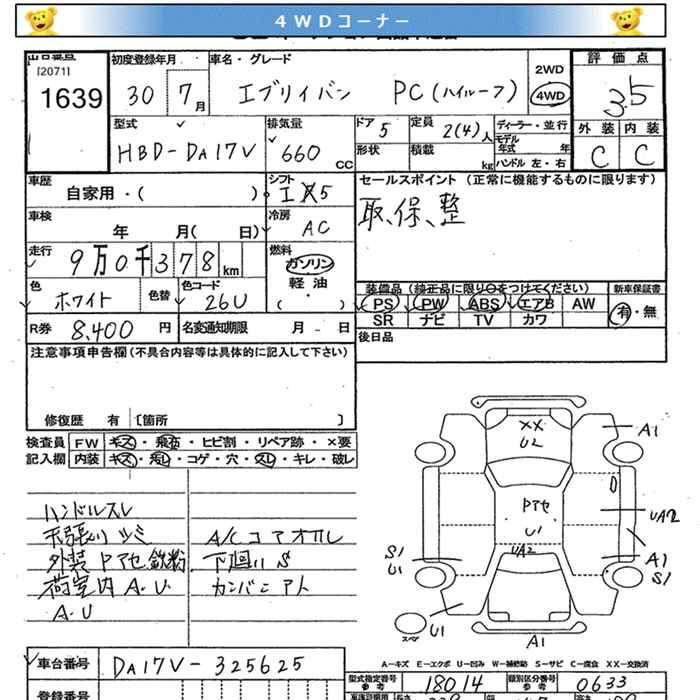 4WDコーナー
出品番号
[2071]
1639
初度登録年月
30 7月
車名・グレード
エブリイバン PC(ハイルーフ)
2WD
4WD
評価点
3.5
型式
HBD-DA17V
排気量
660 CC
ドア 5
形状
定員 2(4)人
積載 kg
ディーラー・並行
モデル年式 年
ハンドル 左・右
外装 内装
C C
車歴
自家用・( )
シフト
I X 5
セールスポイント (正常に機能するものに限ります)
取、保、整
車検
年 月( 日)
冷房
AC
走行
9万0千378km
燃料
ガソリン
軽油
・
( )
色
ホワイト
色替
色コード
26U
装備品 (純正品に限り○をつけてください)
PS PW ABS エアB AW
SR ナビ TV カワ
新車保証書
有・無
R券 8,400円
名変通知期限 月 日
後日品
注意事項申告欄(不具合内容等は具体的に記入して下さい)
修復歴 有 [箇所 ]
検査員 FW キズ・飛石・ヒビ割・リペア跡・×要
記入欄 内装 キズ・汚レ・コゲ・穴・スレ・キレ・破レ
ハンドルスレ
天張リシミ
外装 Pアセ 鉄粉
荷室内 A.U
A.U
A/Cコアオレ
下回リS
カンバンアト
XX
U2
A1
D
Pアセ
U1
UA2
UA2
S1
U1
A1
S1
スペア
U1
A1
A-キズ E-エクボ U-凹み W-補修跡 S-サビ C-腐食 XX-交換済
車台番号 DA17V-325625
型式指定番号
参考
18014
類別区分番号
参考
0633
登録番号